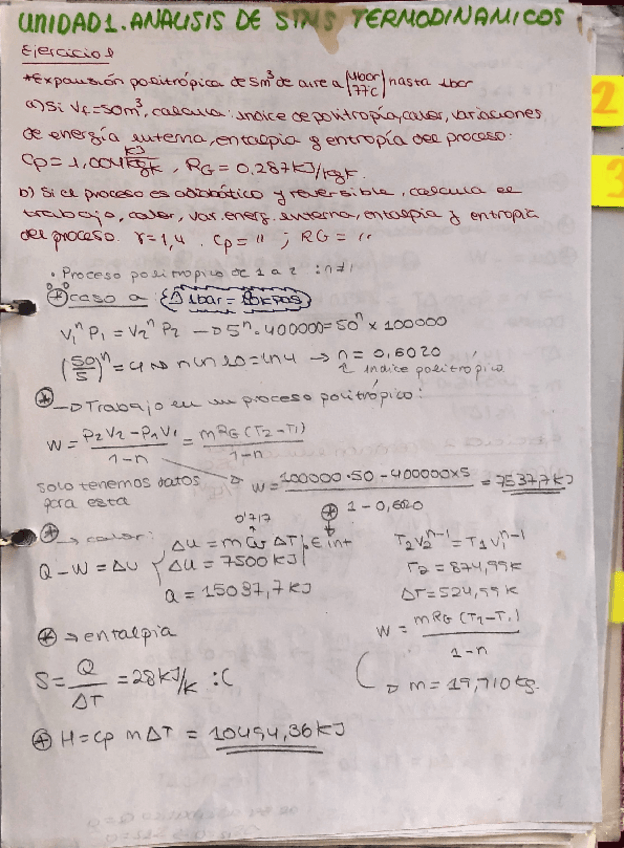 UNIDAD 1. ANALISIS DE SIMS TERMODINAMICOS
Ejercicio 1
*Expansión politrópica de 5m³ de aire a (4bar 77°C) hasta 1bar
a) Si Vf=50m³, calcula: indice de politropía, calor, variaciones
de energía interna, entalpia y entropía del proceso:
Cp=1,004 KJ/kgK, RG=0,287KJ/kgK.
b) Si el proceso es adiabático y reversible, calcula el
trabajo, calor, var. energ. interna, entalpia y entropia
del proceso. γ=1,4. Cp = " ; RG = "
• Proceso politropico de 1 a 2 : n≠1
caso a: 1bar=
V₁ⁿP₁ = V₂ⁿP₂ → 5ⁿ·400000=50ⁿ×100000
(50/5)ⁿ=4 → n ln 10=ln4 → n=0,6020
indice politropico
→ Trabajo en un proceso politrópico:
W = P2V2-P1V1/1-n = mRG(T2-T1)/1-n
solo tenemos datos
para esta
W = 100000·50-400000×5/1-0,6020 = 7537,7KJ
→ calor:
0'717
Q-W=ΔU
ΔU = m Cv ΔT } E int
ΔU = 7500 KJ
Q = 15037,7 KJ
T2V2ⁿ⁻¹=T1V1ⁿ⁻¹
T2 = 874,99K
ΔT=524,99K
W = mRG(T2-T1)/1-n
→ m = 19,710kg.
→ entalpia
S = Q/ΔT = 28KJ/K :C
H=Cp m ΔT = 10494,36KJ
2
3